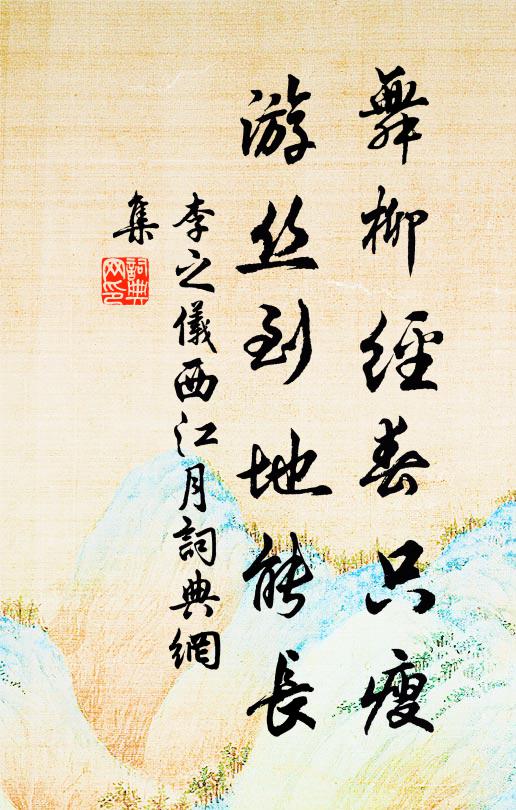 舞柳經春只瘦
游丝到地能長
李之儀西江月詞典網
集
詞典网印